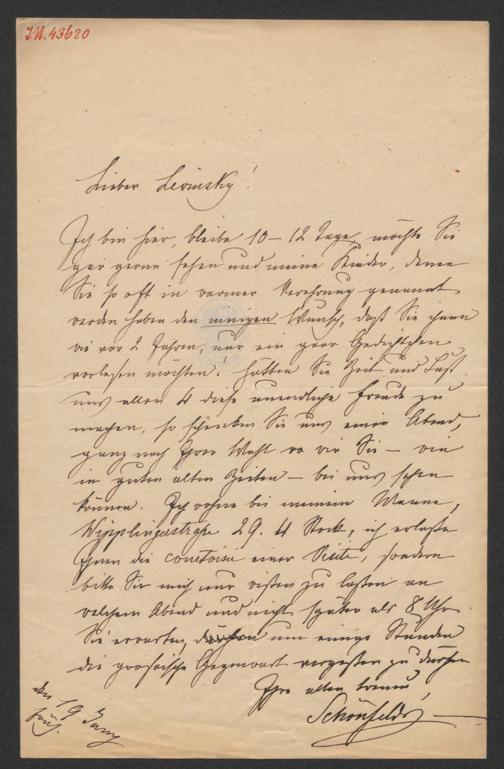 I.N. 43620
Lieber Lewinsky!
Ich bin hier, bleibe 10–12 Tage, möchte Sie
gar gerne sehen und meine Kinder, denen
Sie so oft in warmer Verehrung genannt
werden haben den innigen Wunsch, daß Sie ihnen
wie vor 2 Jahren, nur ein paar Gedichtchen
vorlesen möchten! Hätten Sie Zeit und Lust
uns allen 4 diese unendliche Freude zu
machen, so schenken Sie uns einen Abend,
ganz nach Ihrer Wahl wo wir Sie – wie
in guten alten Zeiten – bei uns sehen
können. Ich wohne bei meinem Manne,
Wipplingerstraße 29. 4 Stock, ich erlasse
Ihnen die courtoisie einer Visite, sondern
bitte Sie mich nur wissen zu lassen an
welchem Abend und nicht später als 8 Uhr
Sie erwarten, um einige Stunden
die prosaische Gegenwart vergessen zu dürfen
Ihre alten treuen,
Schönfelds
den 19